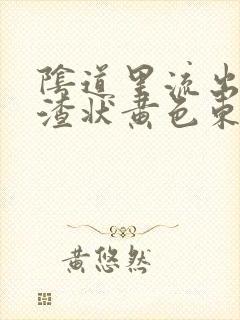 陰道里流出
渣狀黃色東
黃悠然